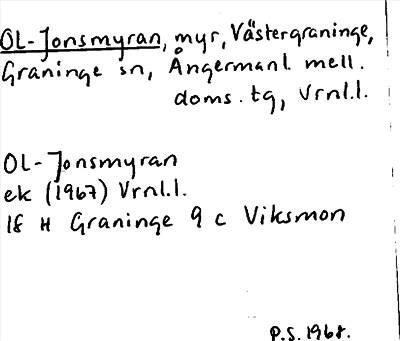 OL-Jonsmyran, myr, Västergraninge,
Graninge sn, Ångermanl. mell.
doms. tg, Vrnl.l.
OL-Jonsmyran
ek (1967) Vrnl.l.
18 H Graninge 9 c Viksmon
P.S. 1968.